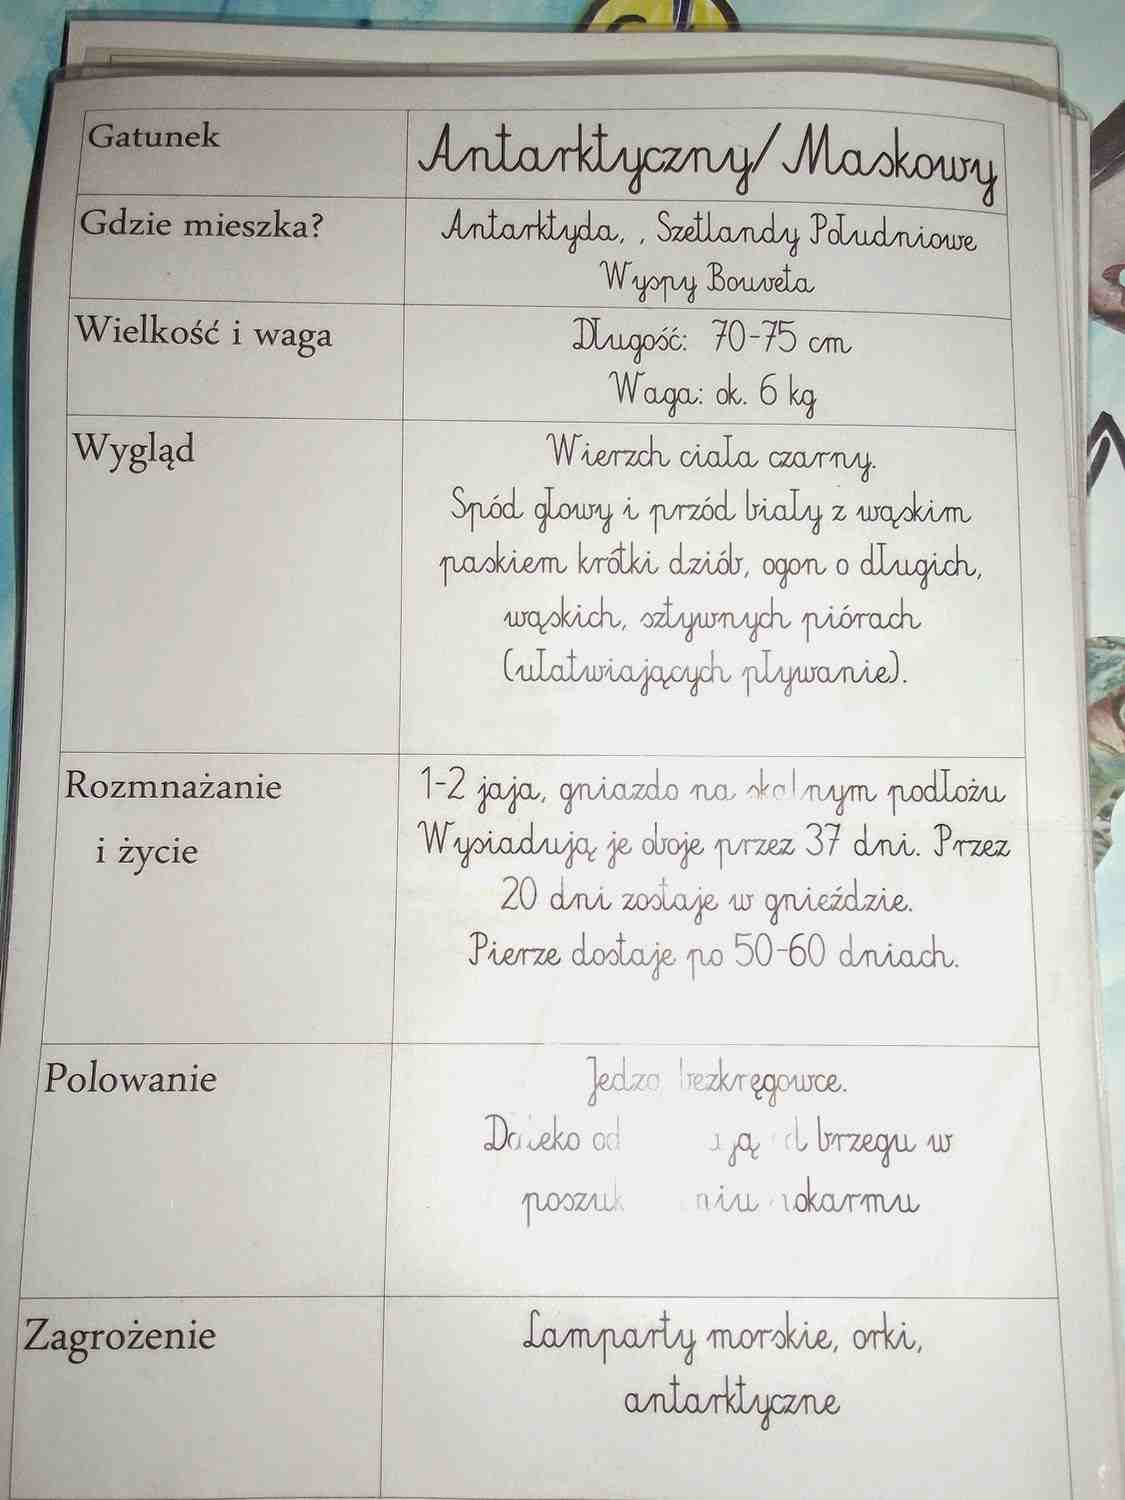 Gatunek
Antarktyczny/Maskowy
Gdzie mieszka?
Antarktyda, , Szetlandy Południowe
Wyspy Bouveta
Wielkość i waga
Długość: 70-75 cm
Waga: ok. 6 kg
Wygląd
Wierzch ciała czarny.
Spód głowy i przód biały z wąskim
paskiem krótki dziób, ogon o długich,
wąskich, sztywnych piórach
(ułatwiających pływanie).
Rozmnażanie
i życie
1-2 jaja, gniazdo na skalnym podłożu
Wysiadują je oboje przez 37 dni. Przez
20 dni zostaje w gnieździe.
Pierze dostaje po 50-60 dniach.
Polowanie
Jedzą bezkręgowce.
Daleko od brzegu w
pokarmu
Zagrożenie
Lamparty morskie, orki,
antarktyczne